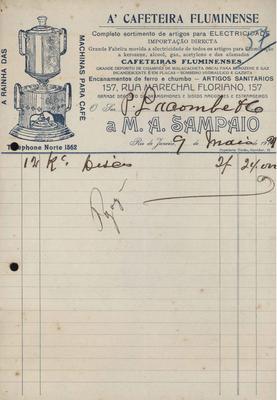 A' CAFETEIRA FLUMINENSE
Completo sortimento de artigos para ELECTRICIDADE
IMPORTAÇÃO DIRECTA
Grande Fabrica movida a electricidade de todos os artigos para
a kerozene, alcool, gaz, acetylene e das afamadas
CAFETEIRAS FLUMINENSES
GRANDE DEPOSITO DE CHAMINÉS DE MALACACHETA (MICA) PARA KEROZENE E GAZ
INCANDESCENTE E EM PLACAS - BOMBEIRO HYDRAULICO E GAZISTA
Encanamentos de ferro e chumbo — ARTIGOS SANITARIOS
157, RUA MARECHAL FLORIANO, 157
GRANDE DEPOSITO DE GRAMOPHONES E DISCOS NACIONAES E ESTRANGEIROS
A RAINHA DAS
MACHINAS PARA CAFÉ
O Snr. P. Lacombe & Co
a M. A. SAMPAIO
Telephone Norte 1562
Rio de Janeiro, 9 de Maio de 19
12 Discos 2$
Pago